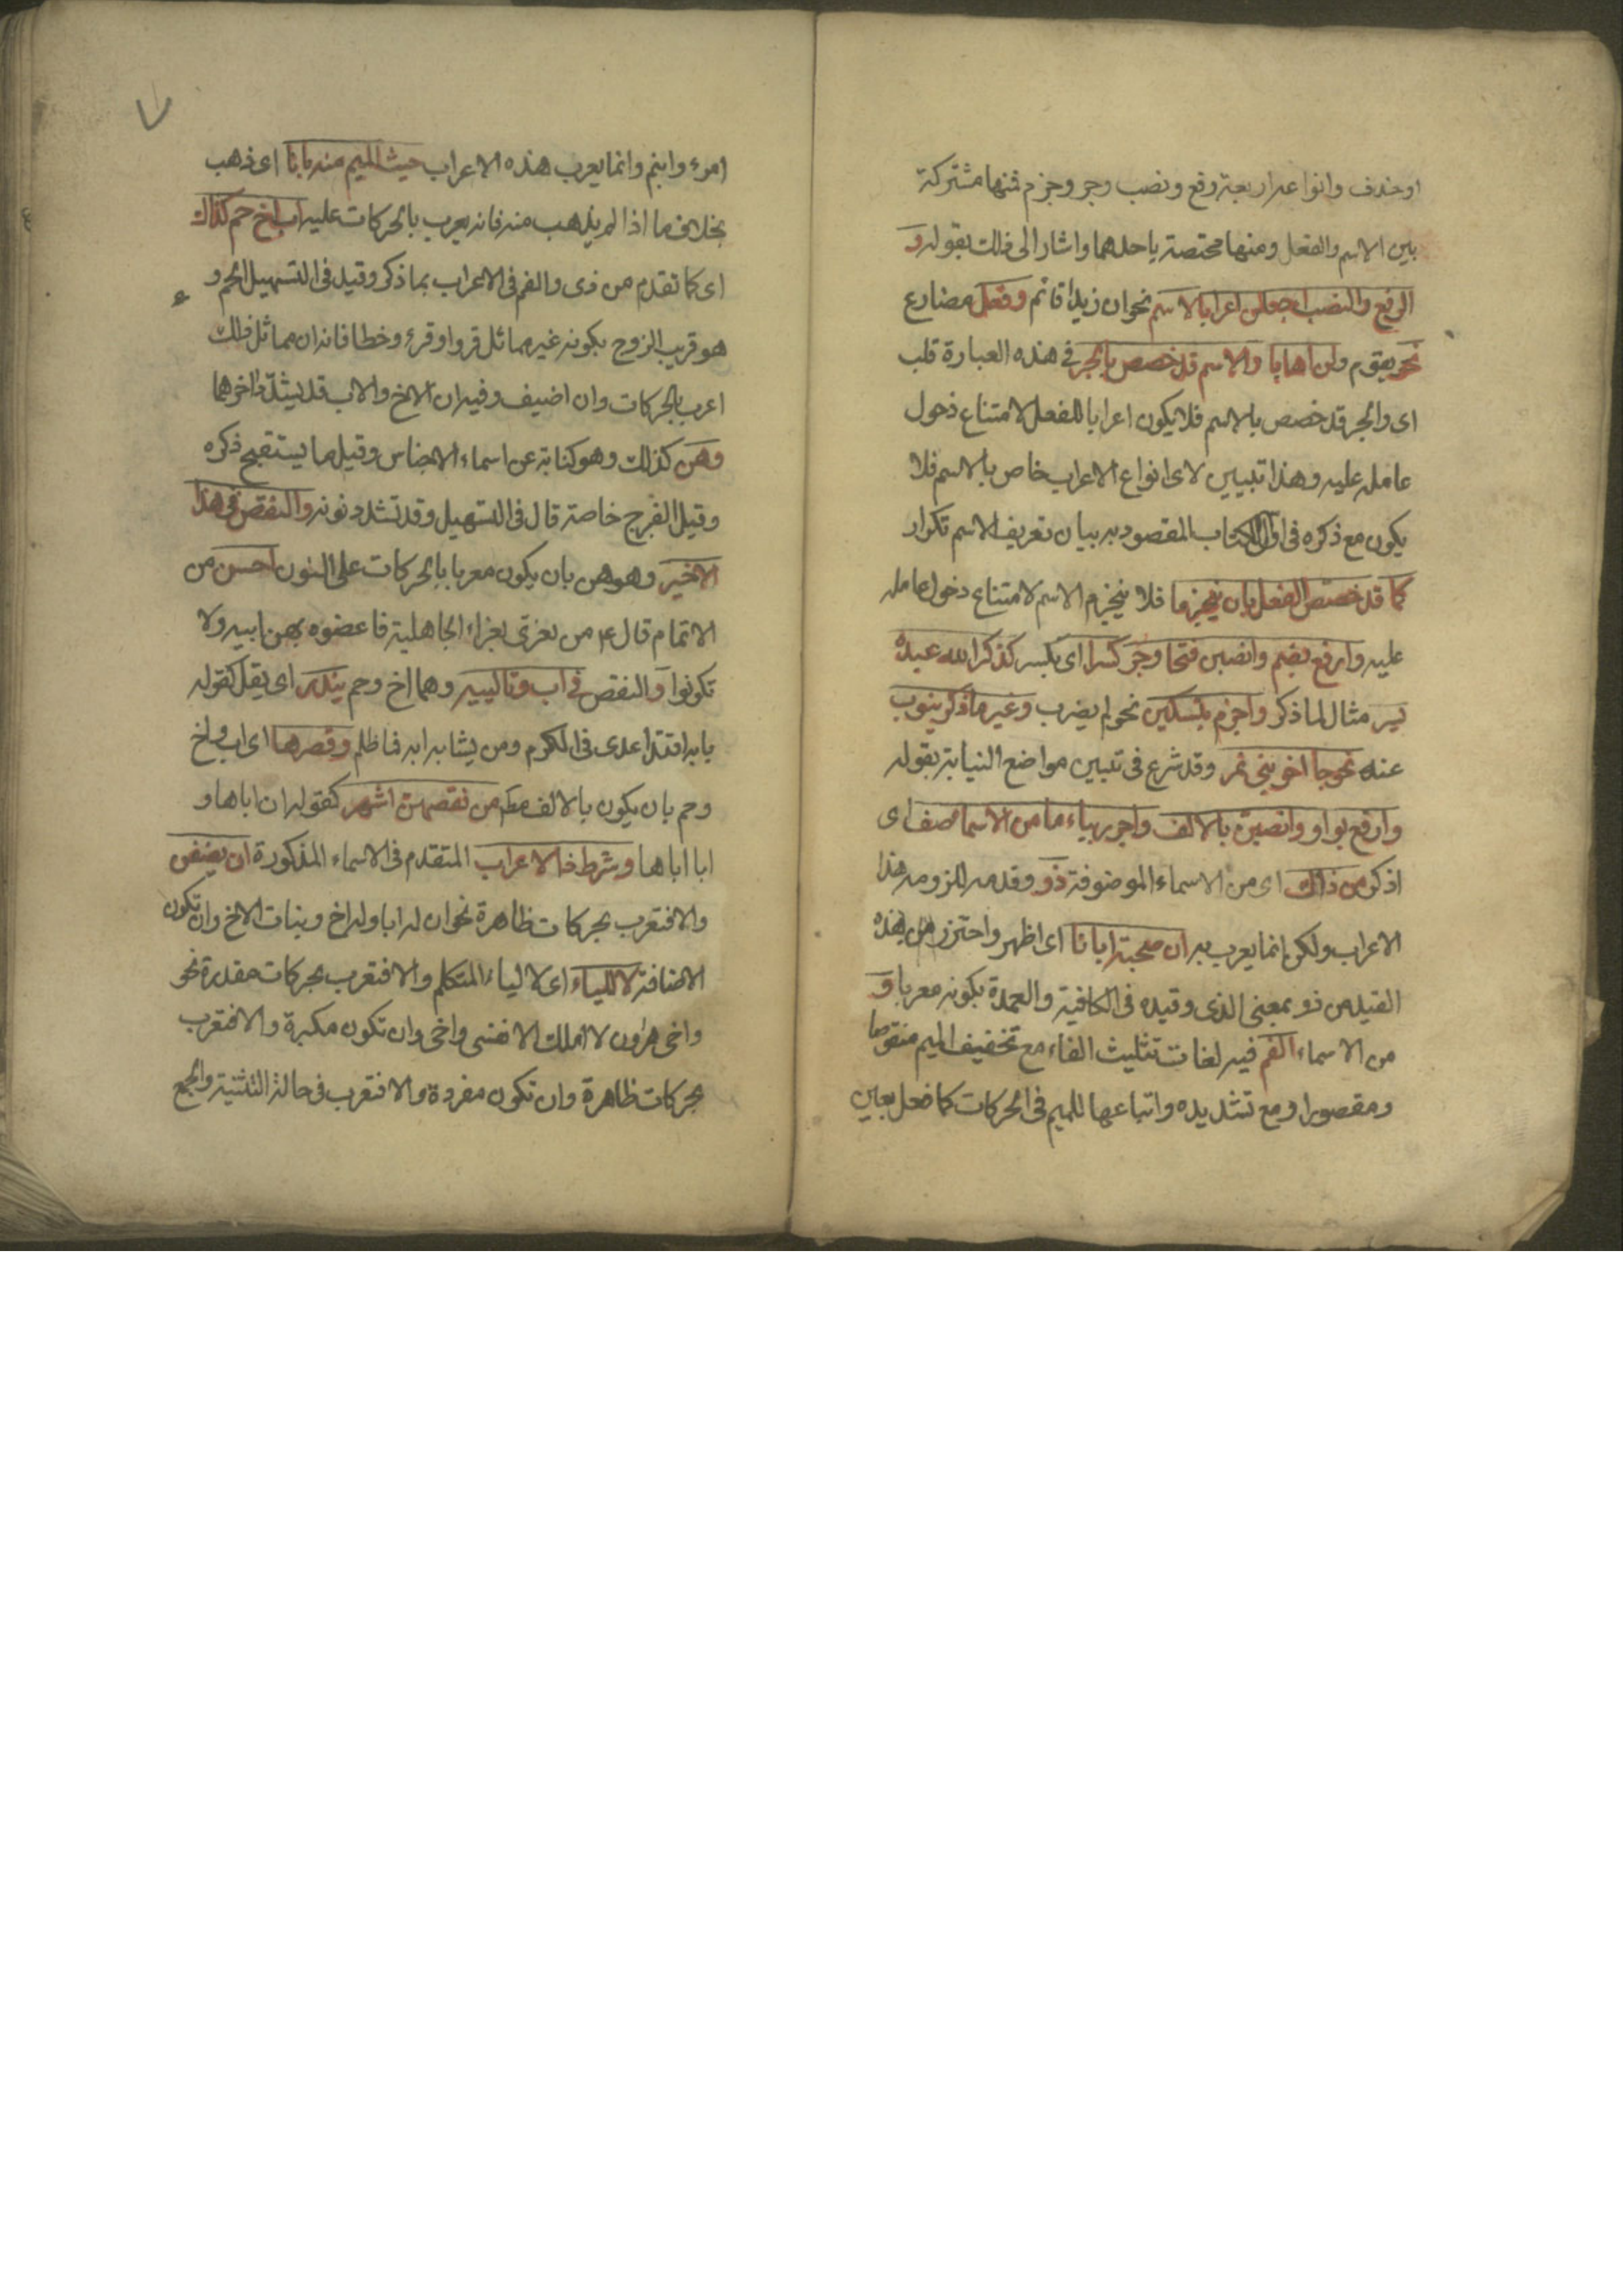 او حذف وانواعه اربعة رفع ونصب وجر وجزم فمنها مشتركة
بين الاسم والفعل ومنها مختصة باحدهما واشار الى ذلك بقوله و
الرفع والنصب اجعلن اعرابا لاسم نحو ان زيدا قائم وفعل مضارع
نحو يقوم ولن اهابا والاسم قد خصص بالجر في هذه العبارة قلب
اى والجر قد خصص بالاسم فلا يكون اعرابا للفعل لامتناع دخول
عامله عليه وهذا تبيين لاى انواع الاعراب خاص بالاسم فلا
يكون مع ذكره فى اول الكتاب المقصود به بيان تعريف الاسم تكرار
كما قد خصص الفعل بان ينجزما فلا ينجزم الاسم لامتناع دخول عامله
عليه وارفع بضم وانصبن فتحا وجر كسرا اى بكسر كذكر الله عبده
يسر مثال لما ذكر واجزم بتسكين نحو لم يضرب وغير ما ذكر ينوب
عنه نحو جا اخو بني نمر وقد شرع فى تبيين مواضع النيابة بقوله
وارفع بواو وانصبن بالالف واجرر بياء ما من الاسما اصف اى
اذكر من ذاك اى من الاسماء الموصوفة ذو وقدمه للزومه هذا
الاعراب ولكن انما يعرب به ان صحبة ابانا اى اظهر واحترز من بهذه
القيد من ذو بمعنى الذى وقيده فى الكافية والعمدة بكونه معربا و
من الاسماء الفم فيه لغات تثليث الفاء مع تخفيف الميم منقوصا
ومقصورا ومع تشديده واتباعها للميم فى الحركات كما فعل بعين
٧
امرء وابنم وانما يعرب هذه الاعراب حيث الميم منه بانا اى ذهب
بخلاف ما اذا لم يذهب منه فانه يعرب بالحركات عليه اب اخ حم كذاك
اى كما تقدم من ذى والفم فى الاعراب بما ذكر وقيد فى التسهيل الحم و
هو قريب الزوج بكونه غير مماثل قروا وقرء وخطا فانه ان مماثل ذلك
اعرب بالحركات وان اضيف وفيه ان الاخ والاب قد يشدد اخرهما
وهن كذلك وهو كناية عن اسماء الاجناس وقيل ما يستقبح ذكره
وقيل الفرج خاصة قال فى التسهيل وقد تشدد نونه والنقص فى هذا
الاخير وهو هن بان يكون معربا بالحركات على النون احسن من
الاتمام قال ع من تعزى بعزاء الجاهلية فاعضوه بهن ابيه ولا
تكونوا والنقص فى اب وتالييه وهما اخ وحم يندر اى يقل كقوله
بابه اقتدا عدى فى الكرم ومن يشابه ابه فما ظلم وقصرها اى اب واخ
وحم بان يكون بالالف مطم من نقصهن اشهر كقوله ان اباها و
ابا اباها وشرط ذا الاعراب المتقدم فى الاسماء المذكورة ان يضفن
والا فتعرب بحركات ظاهرة نحو ان له ابا وله اخ وبنات الاخ وان تكون
الاضافة لا للياء اى لا لياء المتكلم والا فتعرب بحركات مقدرة نحو
واخى هرون لا املك الا نفسى واخى وان تكون مكبرة والا فتعرب
بحركات ظاهرة وان تكون مفردة والا فتعرب فى حالة التثنية والجمع